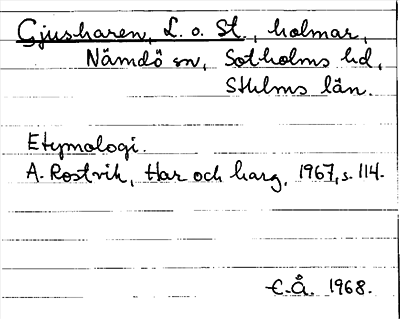 Gjusharen, L. o. St., holmar,
Nämdö sn, Sotholms hd,
Sthlms län.
Etymologi.
A. Rostvik, Har och harg, 1967, s. 114.
E.Å. 1968.